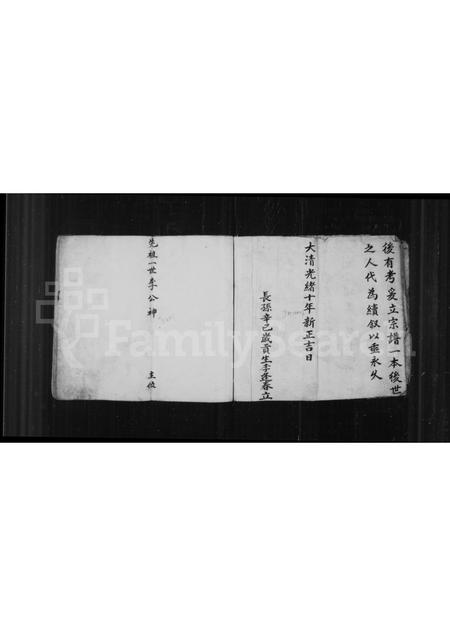 後有考爰立宗譜一本後世
之人代為續叙以垂永久
大清光緒十年新正吉日
長孫辛巳歲貢生李逢春立
先祖一世李公神
主位
FamilySearch